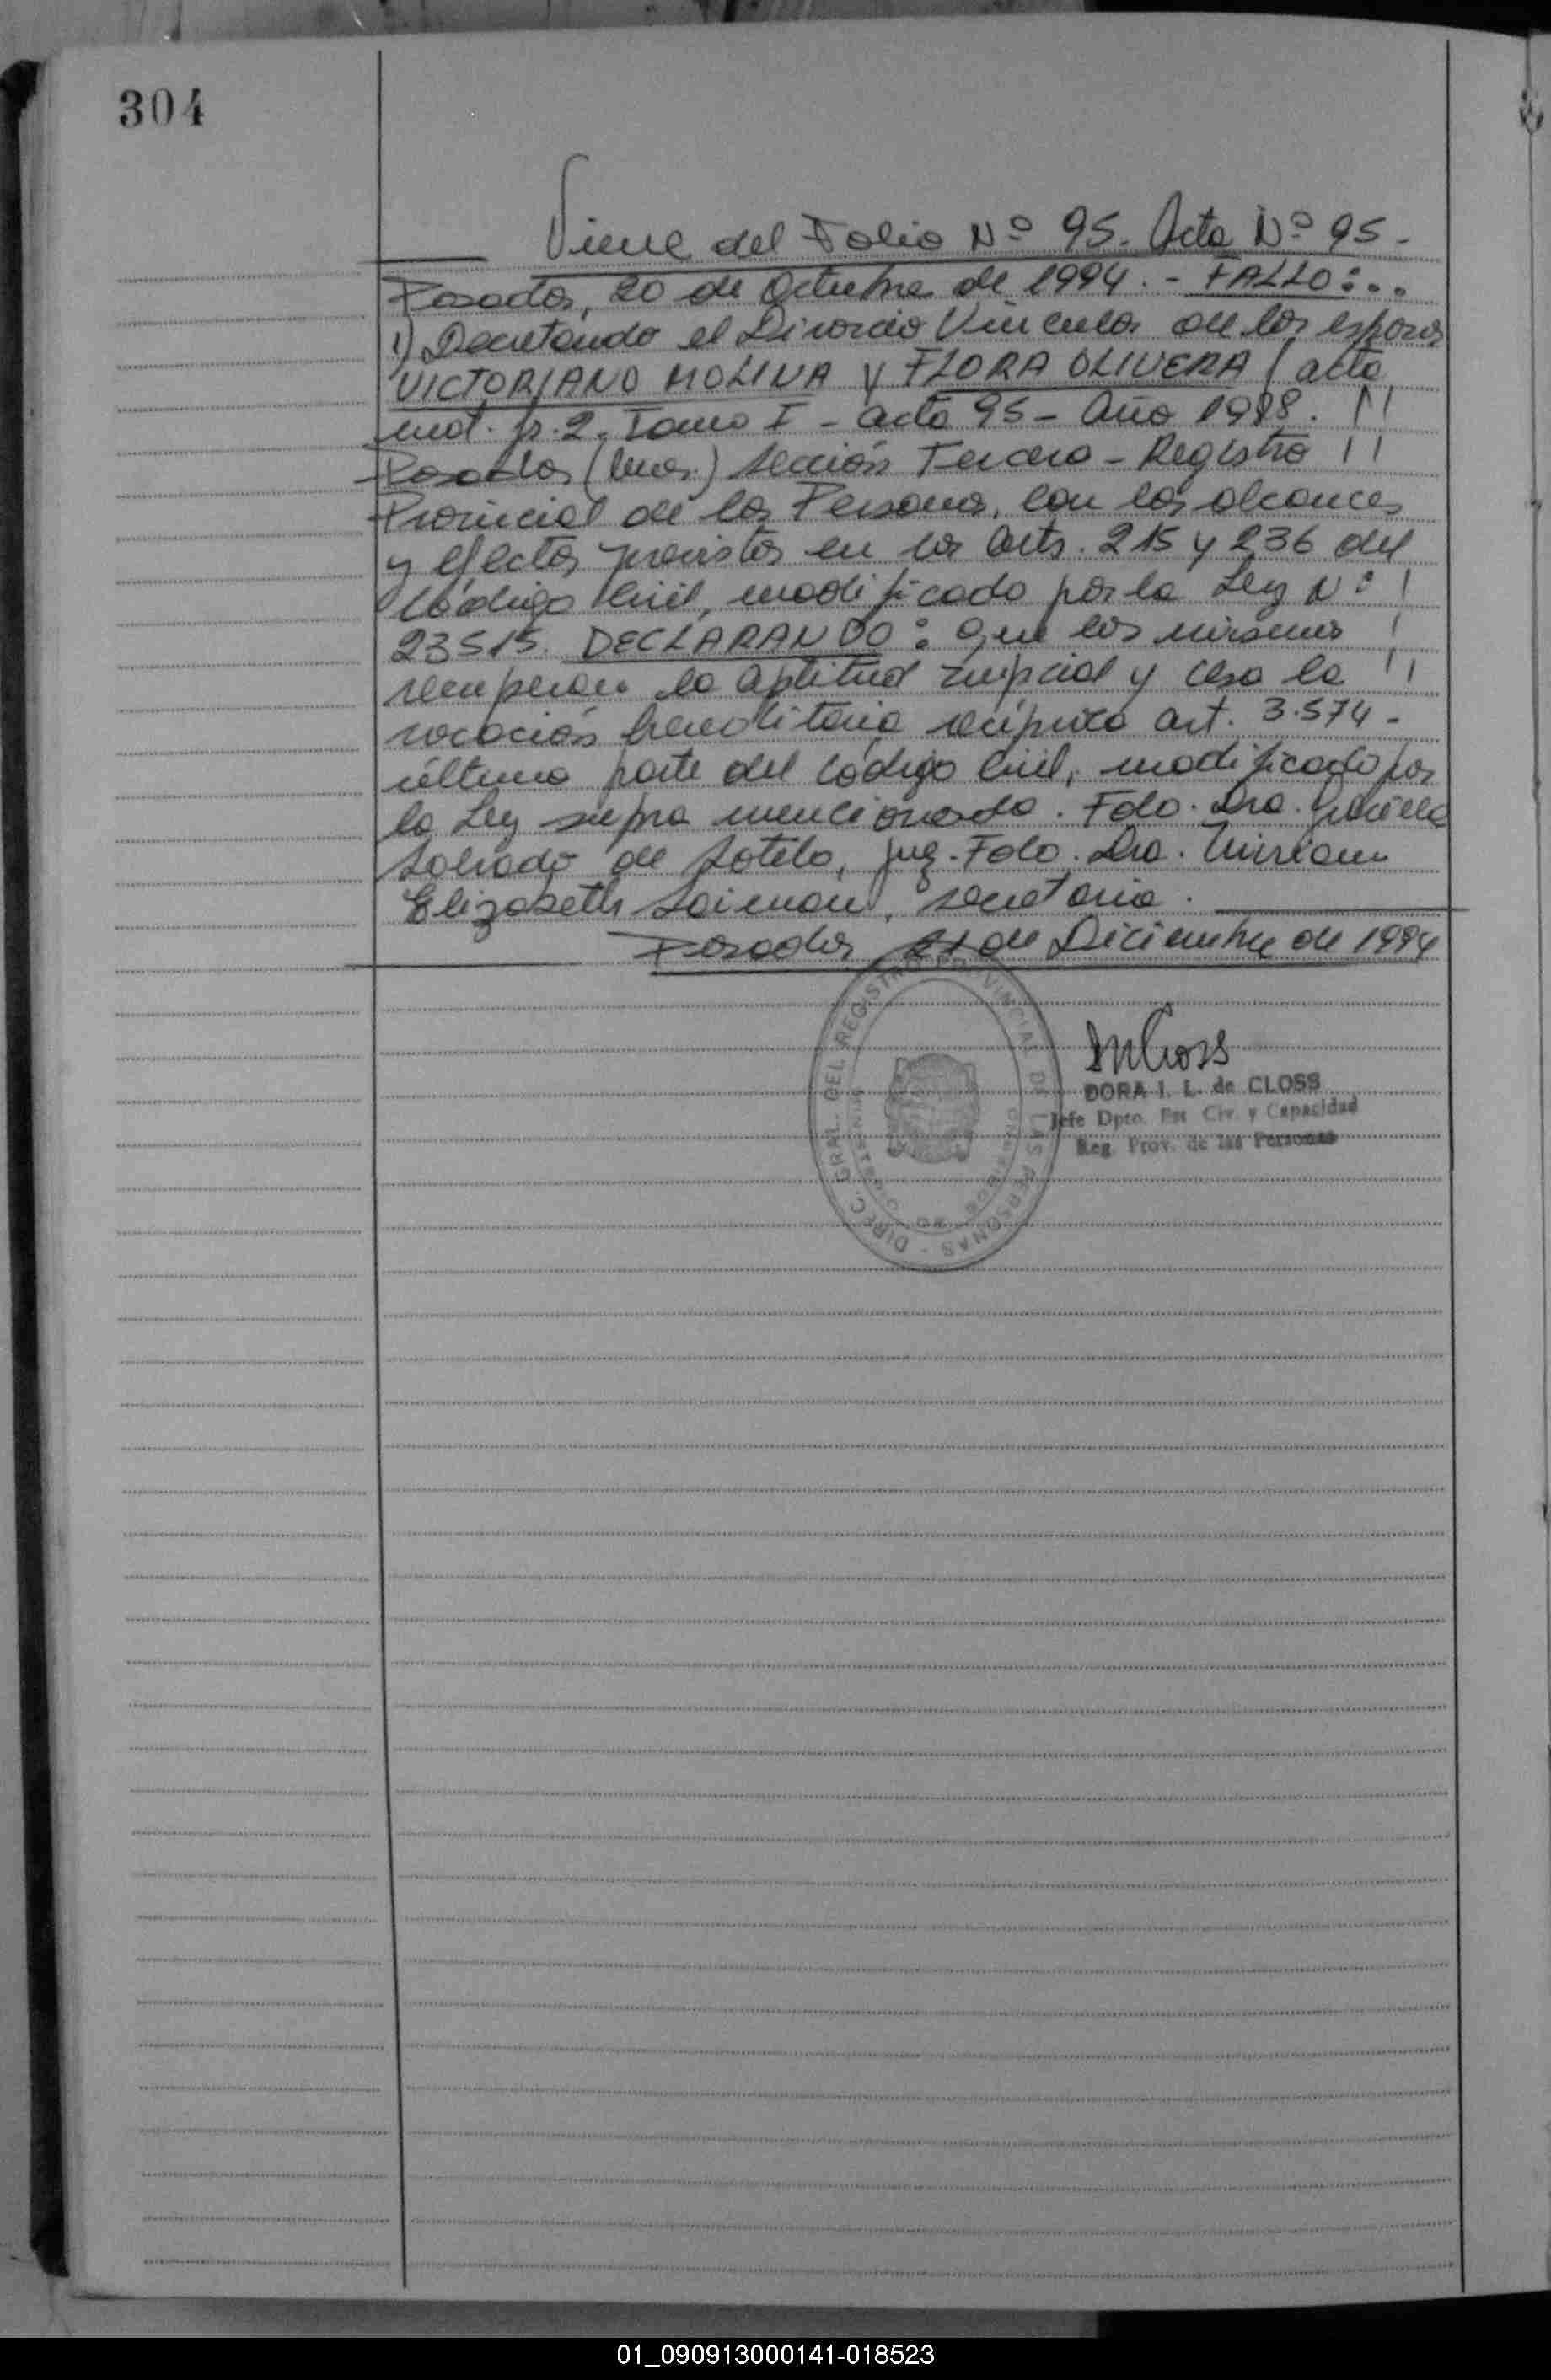 304
Viene del Folio Nº 95. Acta Nº 95-
Posadas, 20 de Octubre de 1994.- FALLO:..
1) Decretando el Divorcio Vincular de los esposos
VICTORIANO MOLINA y FLORA OLIVERA (acta
mat. p. 2. Tomo I - acta 95 - Año 1988.
Posadas (Mnes.) Sección Tercera - Registro
Provincial de las Personas, con los alcances
y efectos previstos en los arts. 215 y 236 del
Código Civil, modificado por la Ley Nº
23515. DECLARANDO: que los mismos
recuperan la aptitud nupcial y cesa la
vocación hereditaria recíproca art. 3.574-
última parte del Código Civil, modificado por
la Ley supra mencionada. Fdo. Dra. Graciela
de Sotelo, Juez. Fdo. Dra. Miriam
Elizabeth, secretaria.
Posadas 21 de Diciembre de 1994
DIREC. GRAL. DEL REGISTRO PROVINCIAL DE LAS PERSONAS -
DORA I. L. de CLOSS
Jefe Dpto. Est Civ. y Capacidad
Reg. Prov. de las Personas
01_090913000141-018523